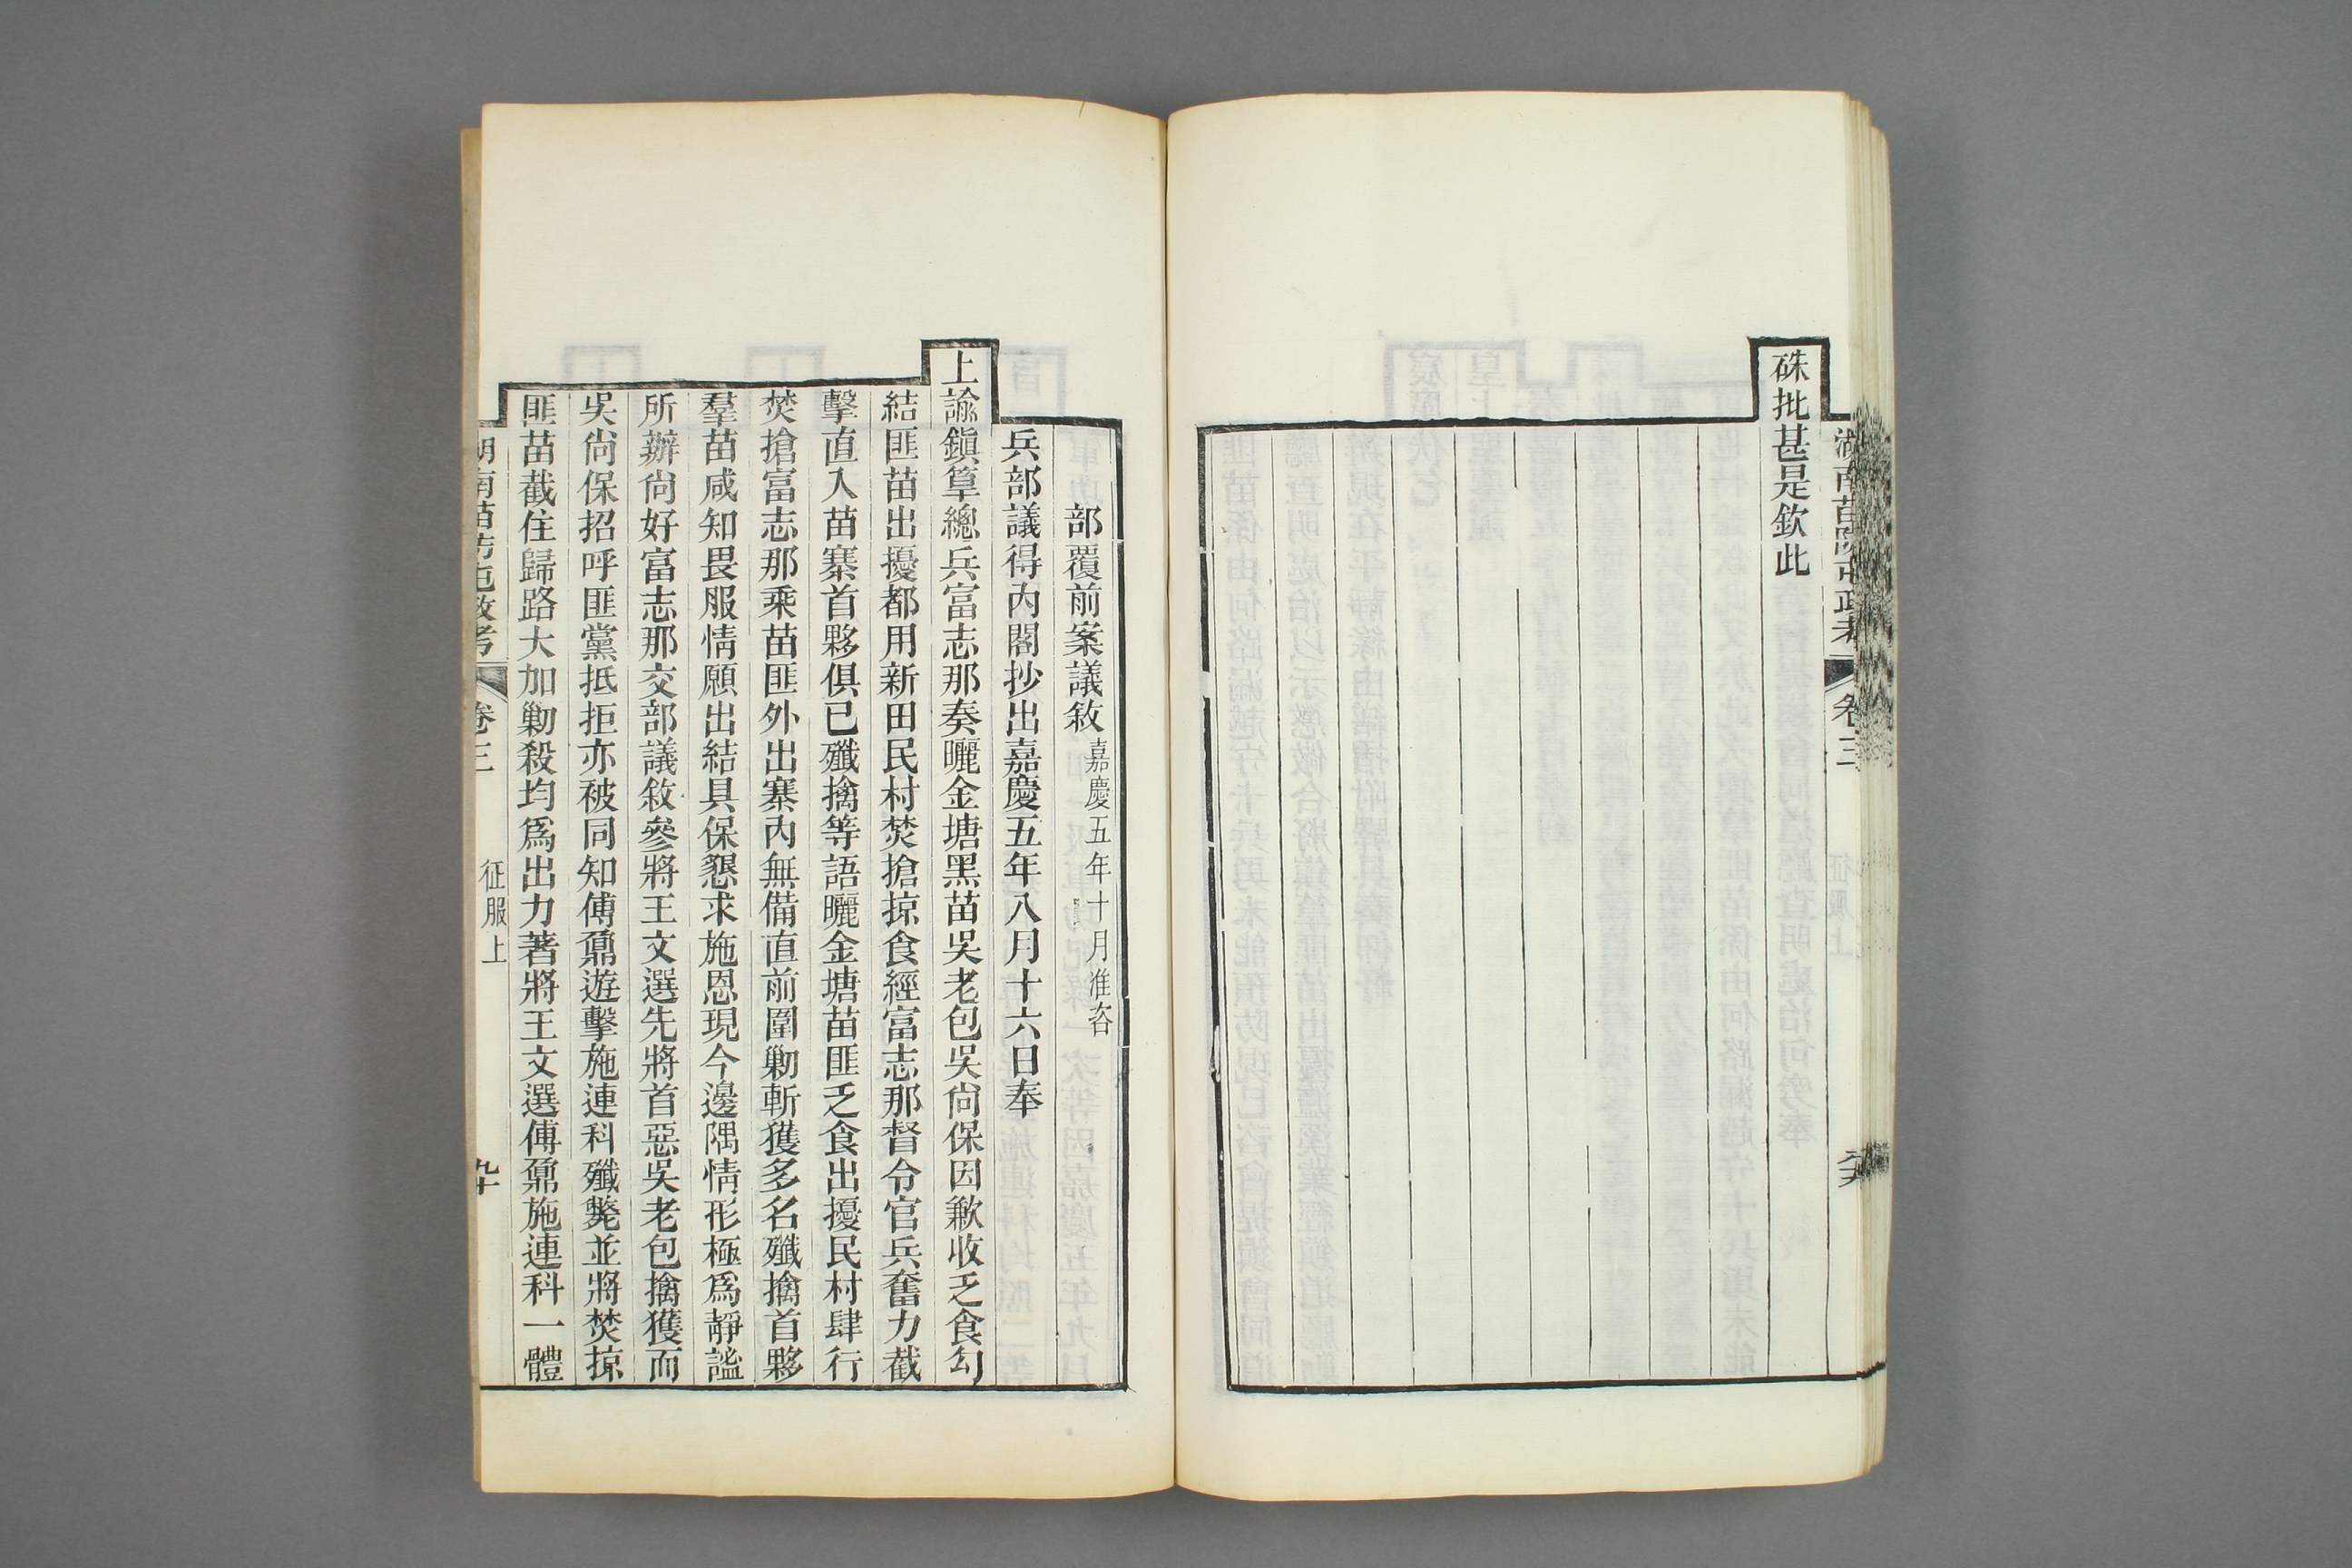 硃批甚是欽此
部覆前案議敘嘉慶五年十月准咨
兵部議得內閣抄出嘉慶五年八月十六日奉
上諭鎭筸總兵富志那奏曬金塘黑苗吳老包吳尙保因歉收乏食勾
結匪苗出擾都用新田民村焚搶掠食經富志那督令官兵奮力截
擊直入苗寨首夥俱已殲擒等語曬金塘苗匪乏食出擾民村肆行
焚搶富志那乘苗匪外出寨內無備直前圍勦斬獲多名殲擒首夥
羣苗咸知畏服情願出結具保懇求施恩現今邊隅情形極爲靜謐
所辦尙好富志那交部議敘參將王文選先將首惡吳老包擒獲而
吳尙保招呼匪黨抵拒亦被同知傅鼐遊擊施連科殲斃並將焚掠
匪苗截住歸路大加勦殺均爲出力著將王文選傅鼐施連科一體
卷三
征服上